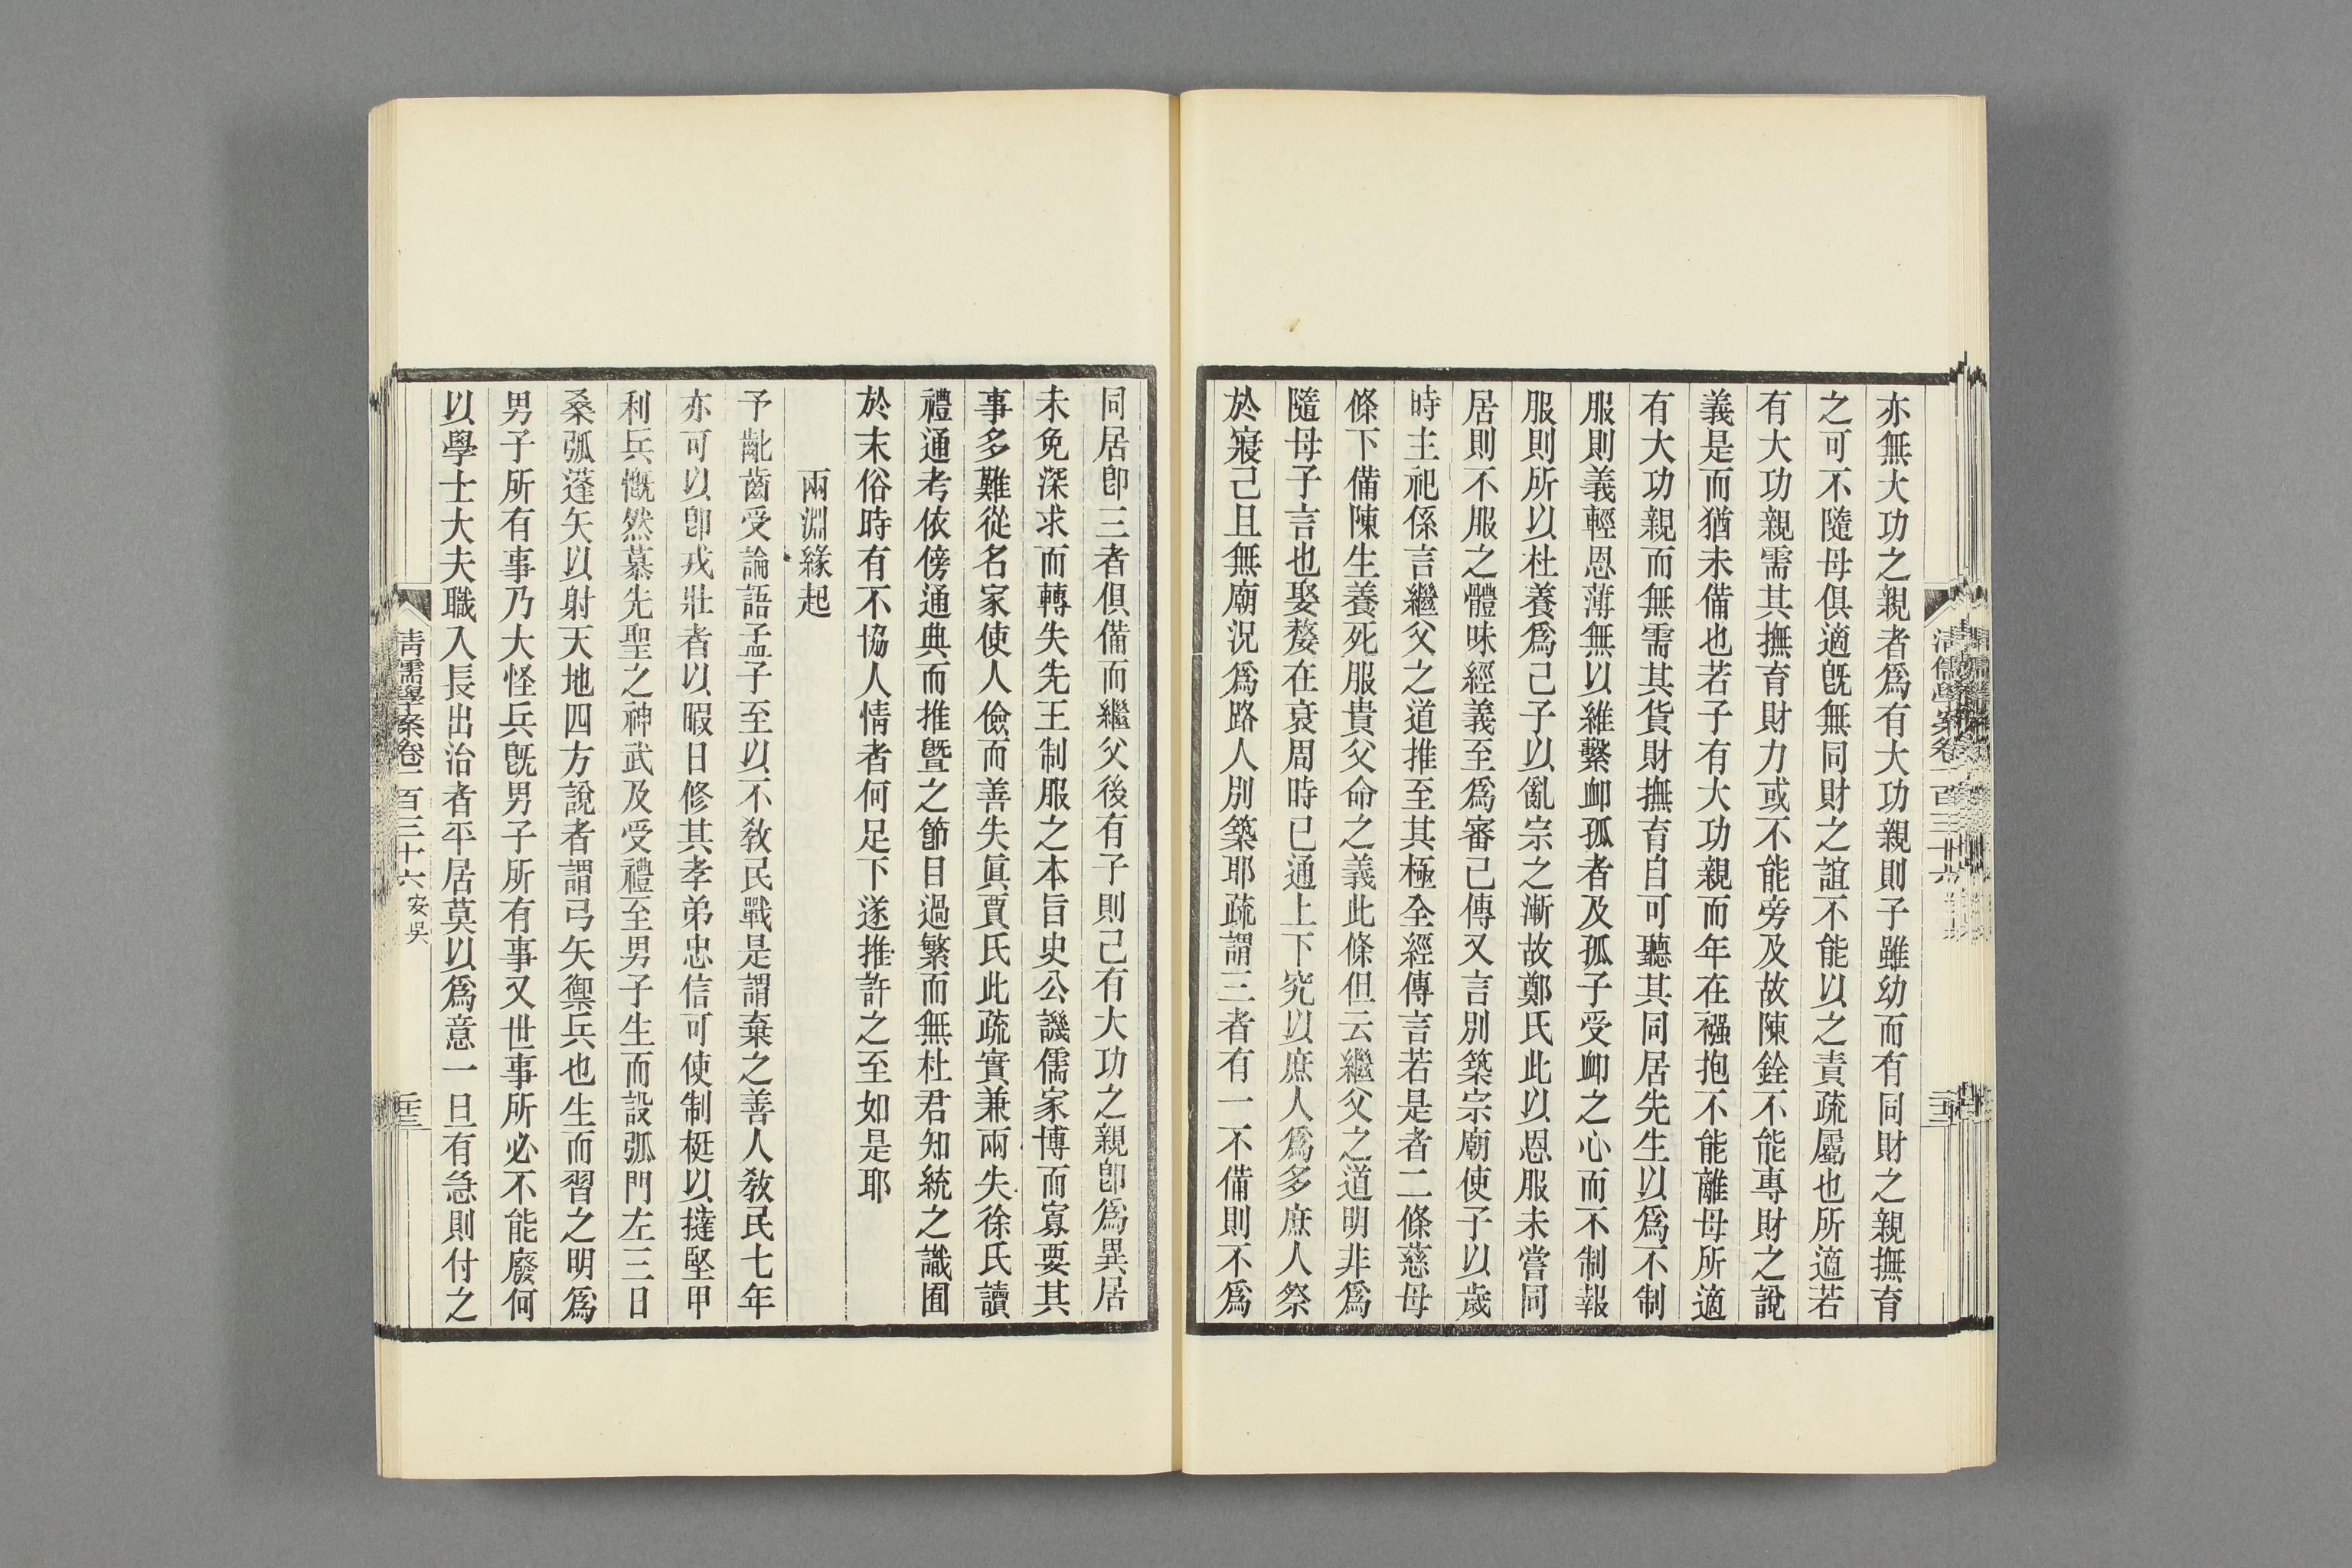 亦無大功之親者爲有大功親則子雖幼而有同財之親撫育
之可不隨母俱適旣無同財之誼不能以之責疏屬也所適若
有大功親需其撫育財力或不能旁及故陳銓不能專財之說
義是而猶未備也若子有大功親而年在襁抱不能離母所適
有大功親而無需其貨財撫育自可聽其同居先生以爲不制
服則義輕恩薄無以維繫卹孤者及孤子受卹之心而不制報
服則所以杜養爲己子以亂宗之漸故鄭氏此以恩服未嘗同
居則不服之體味經義至爲審己傳又言別築宗廟使子以歲
時主祀係言繼父之道推至其極全經傳言若是者二條慈母
條下備陳生養死服貴父命之義此條但云繼父之道明非爲
隨母子言也娶嫠在衰周時已通上下究以庶人爲多庶人祭
於寢己且無廟況爲路人別築耶疏謂三者有一不備則不爲
同居卽三者俱備而繼父後有子則己有大功之親卽爲異居
未免深求而轉失先王制服之本旨史公譏儒家博而寡要其
事多難從名家使人儉而善失眞賈氏此疏實兼兩失徐氏讀
禮通考依傍通典而推曁之節目過繁而無杜君知統之識囿
於末俗時有不協人情者何足下遂推許之至如是耶
兩淵緣起
予齔齒受論語孟子至以不敎民戰是謂棄之善人敎民七年
亦可以卽戎壯者以暇日修其孝弟忠信可使制梃以撻堅甲
利兵慨然慕先聖之神武及受禮至男子生而設弧門左三日
桑弧蓬矢以射天地四方說者謂弓矢禦兵也生而習之明爲
男子所有事乃大怪兵旣男子所有事又世事所必不能廢何
以學士大夫職入長出治者平居莫以爲意一旦有急則付之
清儒學案卷一百三十六 安吳